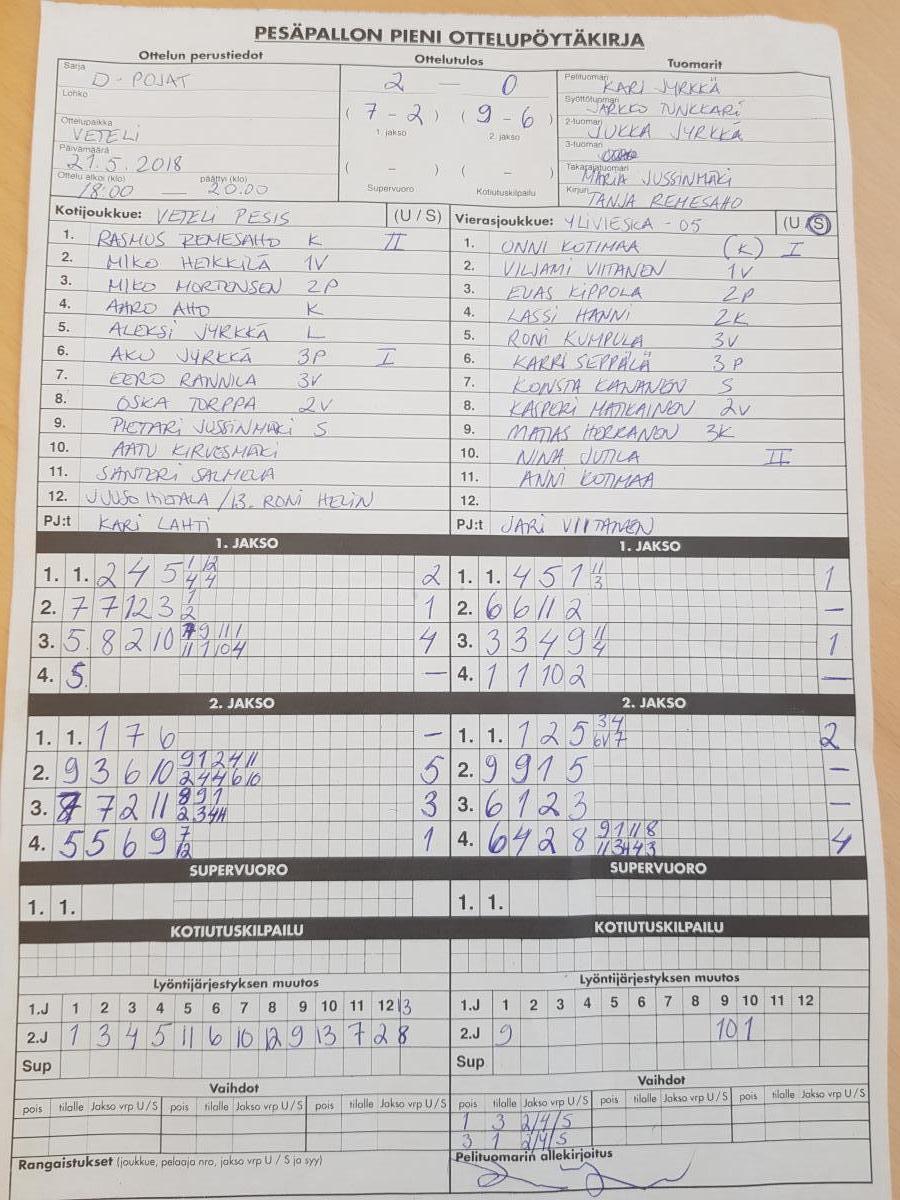 PESÄPALLON PIENI OTTELUPÖYTÄKIRJA
Ottelun perustiedot
Sarja
D - POJAT
Lohko
Ottelupaikka
VETELI
Päivämäärä
21.5.2018
Ottelu alkoi (klo) päättyi (klo)
18:00 — 20.00
Ottelutulos
2 — 0
( 7 - 2 ) ( 9 - 6 )
1. jakso 2. jakso
( - ) ( - )
Supervuoro Kotiutuskilpailu
Tuomarit
Pelituomari KARI JYRKKÄ
Syöttötuomari JARKKO TUNKKARI
2-tuomari JUKKA JYRKKÄ
3-tuomari
Takarajatuomari MARIA JUSSINMÄKI
Kirjuri TANJA REMESAHO
Kotijoukkue: VETELI PESIS (U / S)
1. RASMUS REMESAHO K II
2. MIKO HEIKKILÄ 1V
3. MIKO MORTENSEN 2P
4. AARO AHO K
5. ALEKSI JYRKKÄ L
6. AKU JYRKKÄ 3P I
7. EERO RANNILA 3V
8. OSKA TORPPA 2V
9. PIETARI JUSSINMÄKI S
10. AATU KIRVESMÄKI
11. SANTERI SALMELA
12. JUUSO HIETALA / 13. RONI HELIN
PJ:t KARI LAHTI
Vierasjoukkue: YLIVIESKA - 05 (U / S)
1. ONNI KOTIMAA (K) I
2. VILJAMI VIITANEN 1V
3. KIPPOLA 2P
4. LASSI HANNI 2K
5. RONI KUMPULA 3V
6. KARRI SEPPÄLÄ 3P
7. KONSTA KANANEN S
8. KASPERI MATKAINEN 2V
9. MATIAS HERRANEN 3K
10. NINA JUTILA II
11. ANNI KOTIMAA
12.
PJ:t JARI VIITANEN
1. JAKSO
1. 1. 2 4 5 1 12 2
4 4
2. 7 7 12 3 1 1
2
3. 5 8 2 10 7 9 11 1 4
11 1 10 4
4. 5. —
1. JAKSO
1. 1. 4 5 1 11 1
3
2. 6 6 11 2 —
3. 3 3 4 9 11 1
4
4. 1 1 10 2 —
2. JAKSO
1. 1. 1 7 6 —
2. 9 3 6 10 9 12 4 11 5
2 4 4 6 10
3. 7 7 2 11 8 9 1 3
2 3 4 11
4. 5 5 6 9 7 1
12
2. JAKSO
1. 1. 1 2 5 3 4 2
6V 7
2. 9 9 1 5 —
3. 6 1 2 3 —
4. 6 4 2 8 9 1 11 8 4
11 3 4 4 3
SUPERVUORO
1. 1.
SUPERVUORO
1. 1.
KOTIUTUSKILPAILU
KOTIUTUSKILPAILU
Lyöntijärjestyksen muutos
1.J 1 2 3 4 5 6 7 8 9 10 11 12 13
2.J 1 3 4 5 11 6 10 12 9 13 7 2 8
Sup
Lyöntijärjestyksen muutos
1.J 1 2 3 4 5 6 7 8 9 10 11 12
2.J 9 10 1
Sup
Vaihdot
pois tilalle Jakso vrp U / S pois tilalle Jakso vrp U / S pois tilalle Jakso vrp U / S
Vaihdot
pois tilalle Jakso vrp U / S pois tilalle Jakso vrp U / S pois tilalle Jakso vrp U / S
1 3 2/4/S
3 1 2/4/S
Rangaistukset (joukkue, pelaaja nro, jakso vrp U / S ja syy)
Pelituomarin allekirjoitus